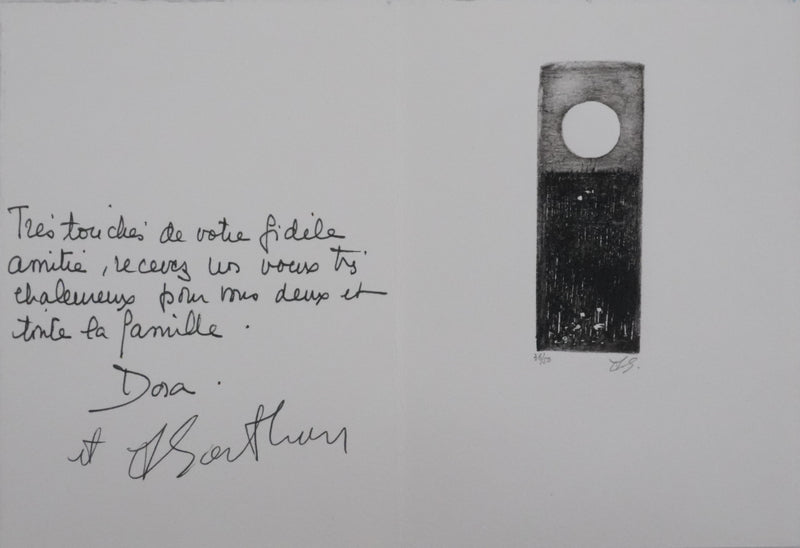 Très touchés de votre fidèle
amitié, recevez nos voeux très
chaleureux pour vous deux et
toute la famille.
Dora.
et